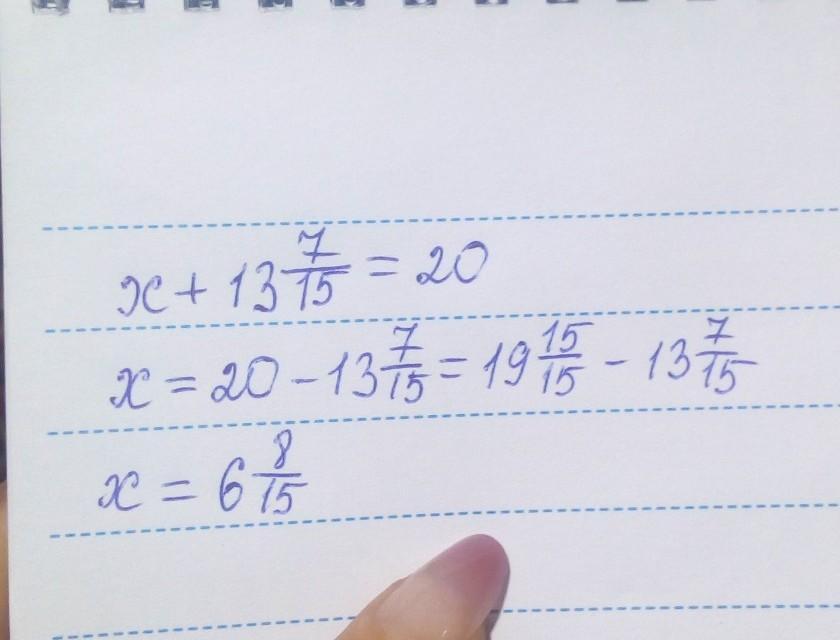 x + 13 7/15 = 20
x = 20 - 13 7/15 = 19 15/15 - 13 7/15
x = 6 8/15